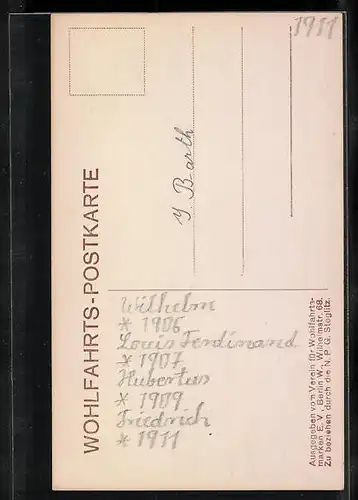 1911
WOHLFAHRTS-POSTKARTE
J. Barth
Wilhelm
* 1906
Louis Ferdinand
* 1907
Hubertus
* 1909
Friedrich
* 1911
Ausgegeben vom Verein für Wohlfahrts-
marken E. V., Berlin W., Wilhelmstr. 68.
Zu beziehen durch die N. P. G. Steglitz.